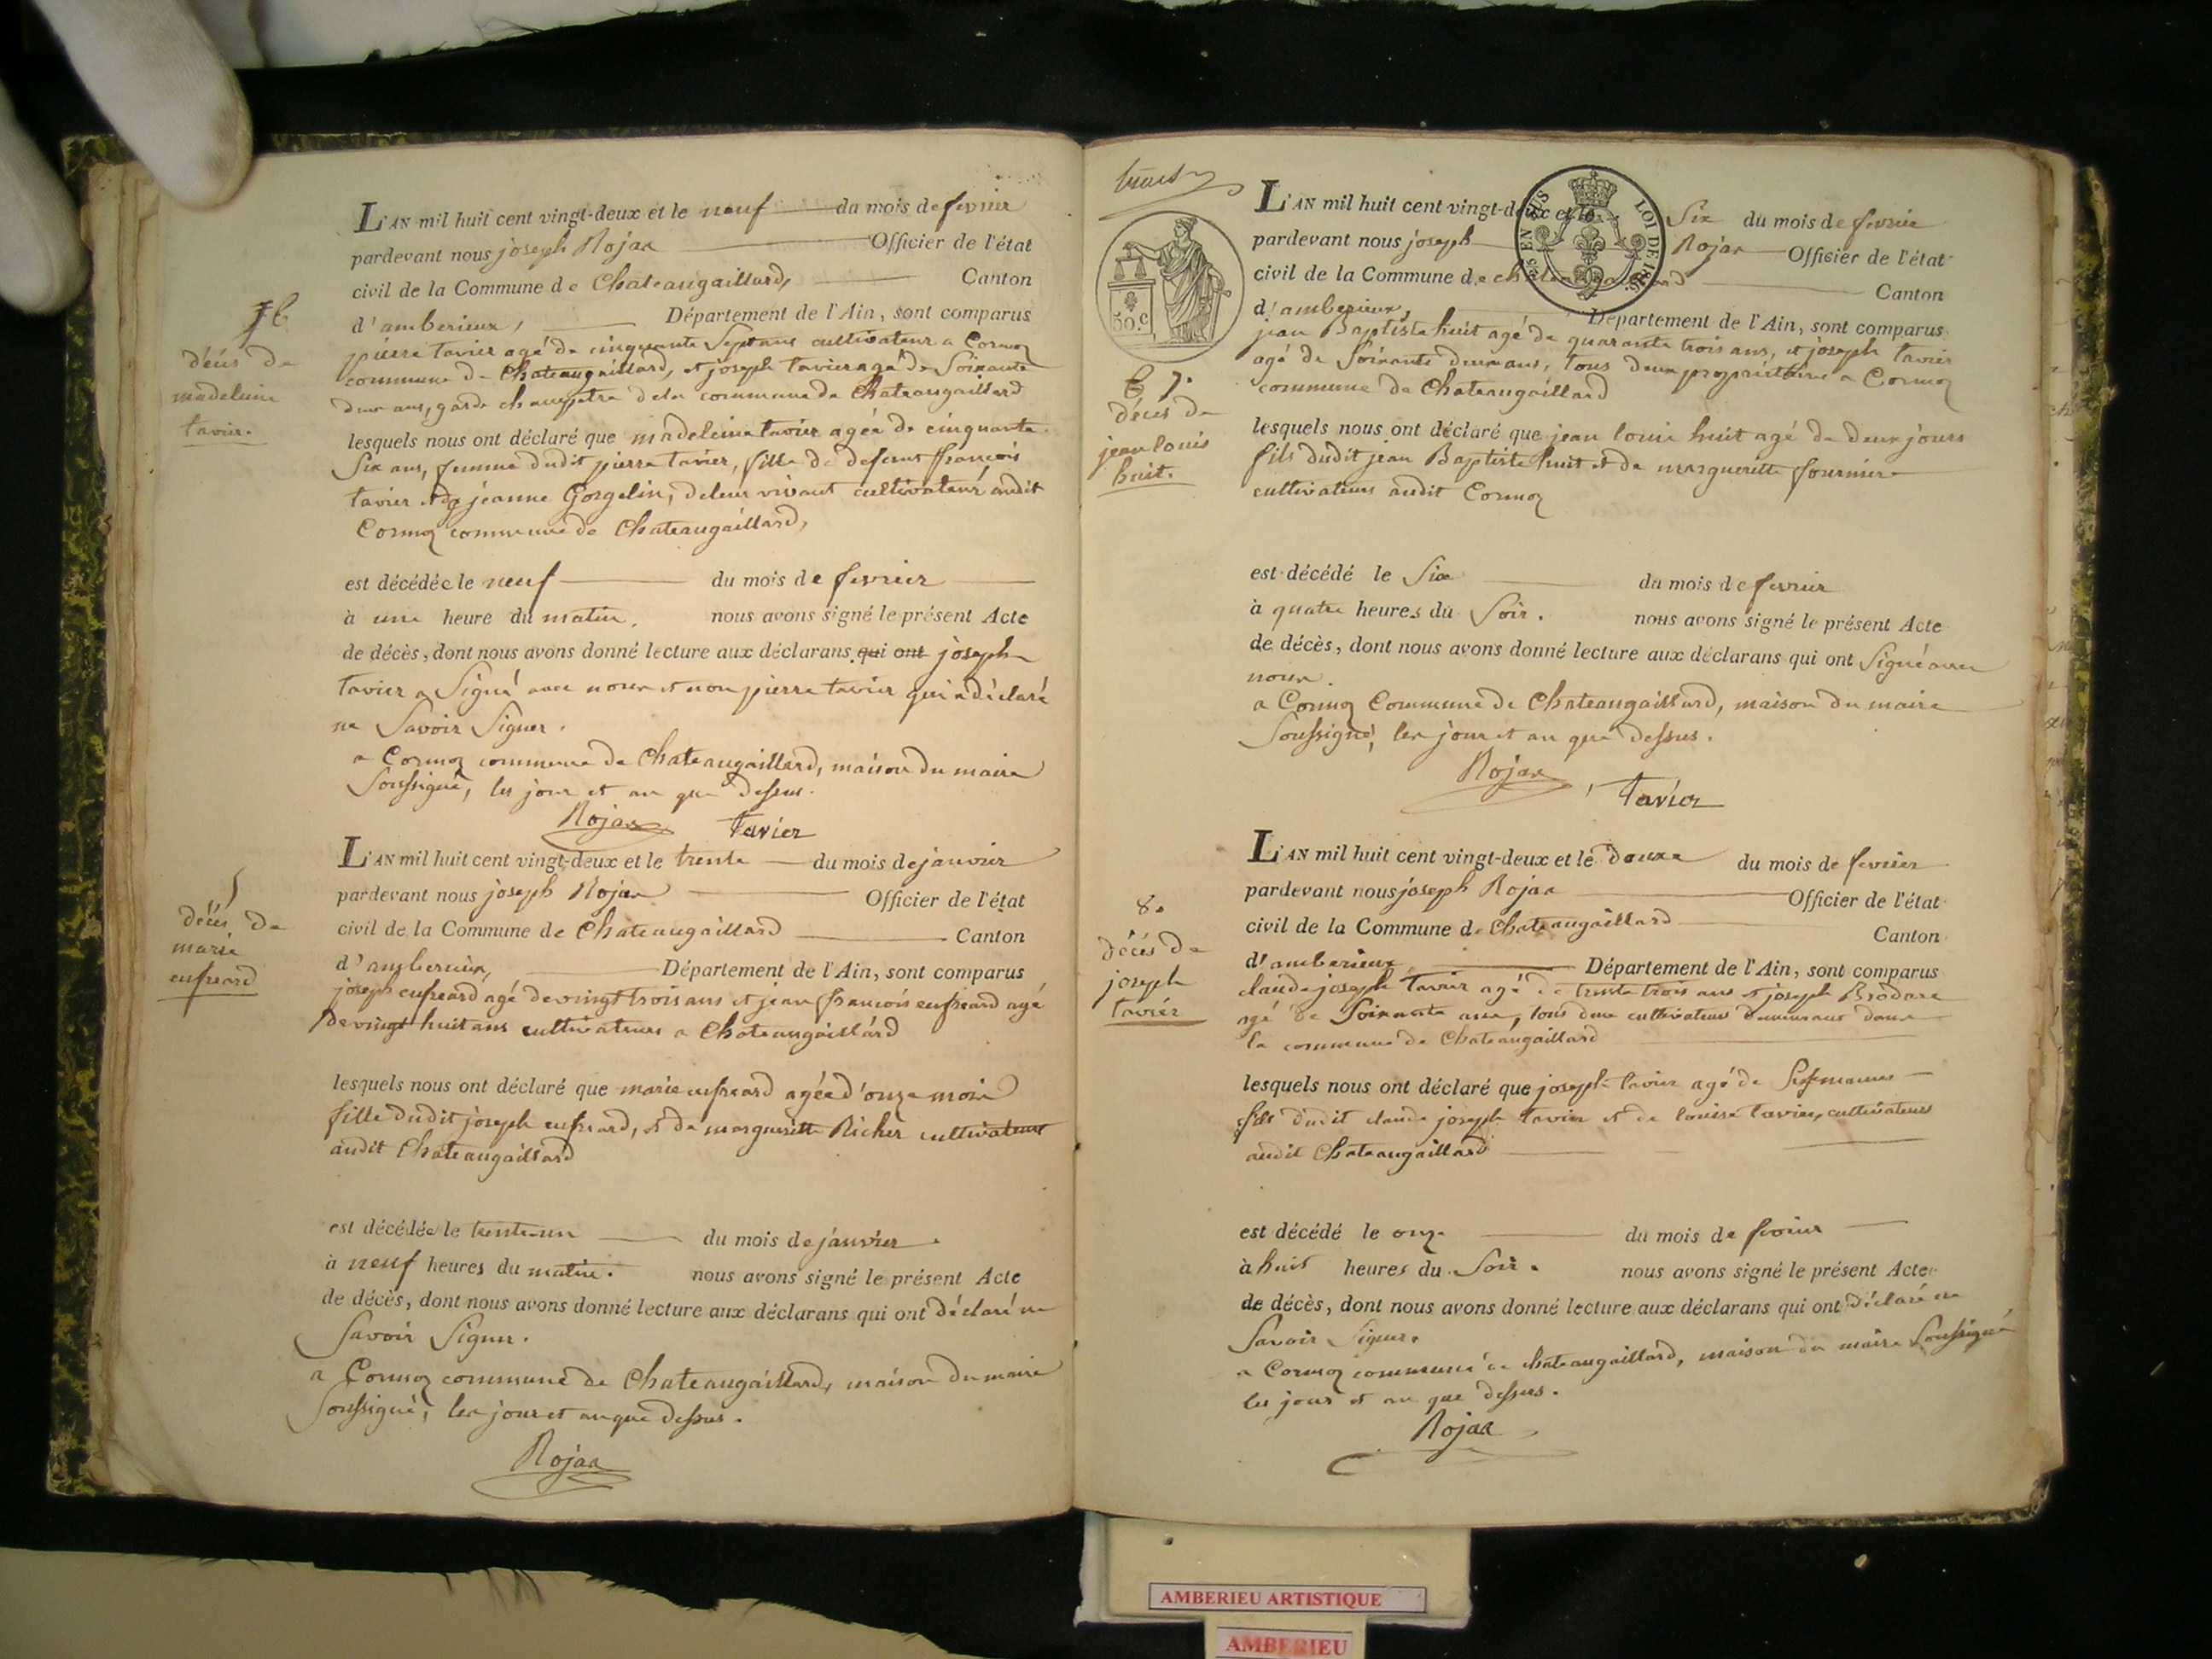 L'AN mil huit cent vingt-deux et le neuf du mois de fevrier
pardevant nous joseph Rojax Officier de l'état
civil de la Commune de Chateaugaillard, Canton
d'amberieux, Département de l'Ain, sont comparus
pierre tavier agé de cinquante Sept ans cultivateur a Cormoz
commune de Chateaugaillard, et joseph tavier agé de Soixante
deux ans, garde champetre de la commune de Chateaugaillard
lesquels nous ont déclaré que madeleine tavier agée de cinquante
Six ans, femme dudit pierre tavier, fille de defunt françois
tavier et de jeanne Gorgelin, de leur vivant cultivateur audit
Cormoz commune de Chateaugaillard,
est décédée le neuf du mois de fevrier
à une heure du matin, nous avons signé le présent Acte
de décès, dont nous avons donné lecture aux déclarans qui ont joseph
tavier a Signé avec nous et non pierre tavier qui a déclaré
ne Savoir Signer.
a Cormoz commune de Chateaugaillard, maison du maire
Soussigné, les jour et an que dessus.
Rojax Tavier
6
décés de
madeleine
tavier.
L'AN mil huit cent vingt-deux et le trente du mois de janvier
pardevant nous joseph Rojax Officier de l'état
civil de la Commune de Chateaugaillard Canton
d'amberieux, Département de l'Ain, sont comparus
joseph agé de vingt trois ans et jean françois agé
de vingt huit ans cultivateurs a Chateaugaillard
lesquels nous ont déclaré que marie agée d'onze mois
fille dudit joseph et de margueritte Richer cultivateurs
audit Chateaugaillard
est décédée le trente-un du mois de janvier.
à neuf heures du matin. nous avons signé le présent Acte
de décès, dont nous avons donné lecture aux déclarans qui ont déclaré ne
Savoir Signer.
a Cormoz commune de Chateaugaillard, maison du maire
Soussigné, les jour et an que dessus.
Rojax
5
décés de
marie
30.c
LOI DE 1816
L'AN mil huit cent vingt-deux et le Six du mois de fevrier
pardevant nous joseph Rojax Officier de l'état
civil de la Commune de chateaugaillard Canton
d'amberieux, Département de l'Ain, sont comparus
jean Baptiste huit agé de quarante trois ans, et joseph tavier
agé de Soixante deux ans, tous deux propriettaires a Cormoz
commune de Chateaugaillard
lesquels nous ont déclaré que jean louis huit agé de deux jours
fils dudit jean Baptiste huit et de margueritte fournier
cultivateurs audit Cormoz
est décédé le Six du mois de fevrier
à quatre heures du Soir. nous avons signé le présent Acte
de décès, dont nous avons donné lecture aux déclarans qui ont Signé avec
nous.
a Cormoz Commune de Chateaugaillard, maison du maire
Soussigné, les jour et an que dessus.
Rojax Tavier
7.
décés de
jean louis
huit.
L'AN mil huit cent vingt-deux et le douze du mois de fevrier
pardevant nous joseph Rojax Officier de l'état
civil de la Commune de Chateaugaillard Canton
d'amberieux, Département de l'Ain, sont comparus
claude joseph tavier agé de trente trois ans et joseph Brodare
agé de Soixante ans, tous deux cultivateurs demeurant dans
la commune de Chateaugaillard
lesquels nous ont déclaré que joseph tavier agé de
fils dudit claude joseph tavier et de louise tavier, cultivateurs
audit Chateaugaillard
est décédé le onze du mois de fevrier
à huit heures du Soir. nous avons signé le présent Acte
de décès, dont nous avons donné lecture aux déclarans qui ont déclaré ne
Savoir Signer.
a Cormoz commune de chateaugaillard, maison du maire Soussigné
les jour et an que dessus.
Rojax
8.
décés de
joseph
tavier
AMBERIEU ARTISTIQUE
AMBERIEU